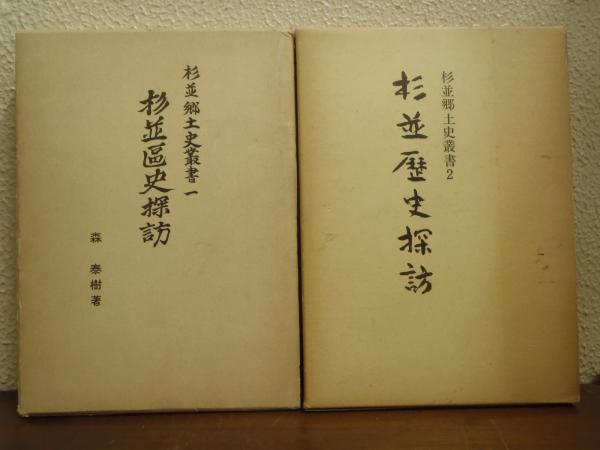 杉並郷土史叢書一
杉並區史探訪
森泰樹著
杉並郷土史叢書2
杉並歴史探訪